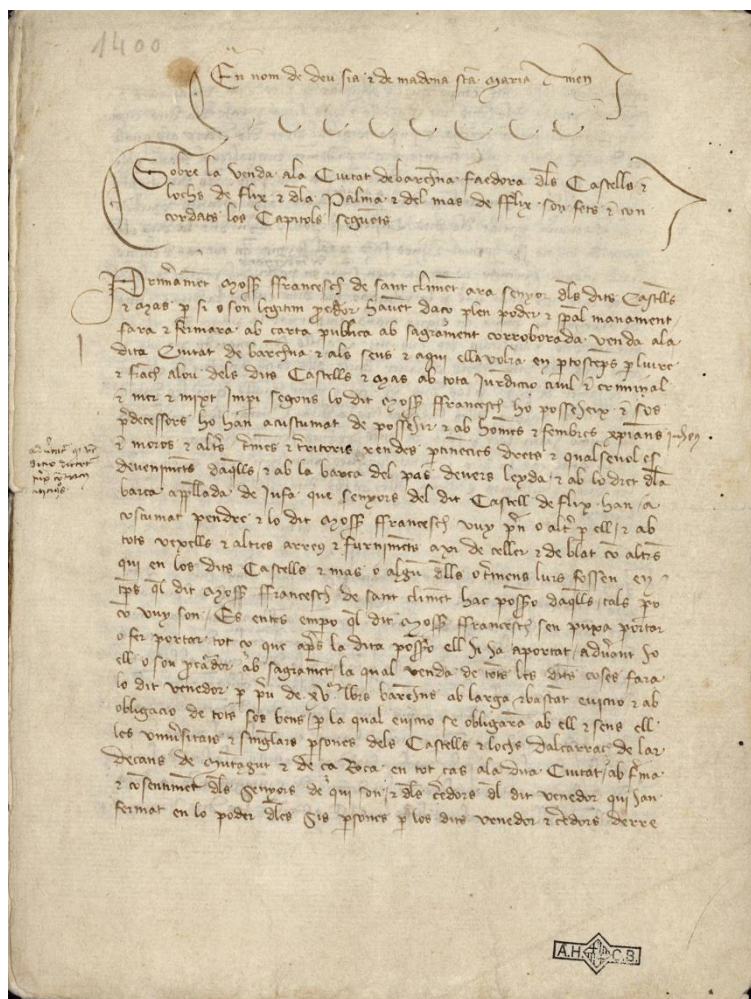 1400
En nom de deu sia & de madona sta Maria Amen
Sobre la venda ala Ciutat de barchna faedora dls Castells &
lochs de flix & dla Palma & del mas de fflix son fets & con
cordats los Capitols seguets
Primamet Moss ffrancesch de sant climet ara senyor dls dits Castells
& Mas p si o son legitim pcdor havet daço plen poder & spal manament
fara & fermara ab carta publica ab sagramet corroborada venda ala
dita Ciutat de barchna & als sens & a qui ella volra en ptostemps p liure
& franch alou dels dits Castells & Mas ab tota Jurdiccio ciuil & criminal
& mer & mixt Imperi segons lo dit Moss ffrancesch ho possehex & sos
pdecessors ho han acustumat de possehir & ab homens & fembres xpians juheus
& moros & altrs tmes & tritoris rendes ptinecies drets & qualseuol es
deuenimets daqlls & ab la barca del pas deuers leyda & ab lo dret dla
barca apllada de Jussa que senyors del dit Castell de flix han a
costumat pendre & lo dit Moss ffrancesch vuy pn o altr p ell & ab
tots vexells & altres arreus & furnimets axi de celler & de blat co altrs
qui en los dits Castells & mas o algu dlls o tmens lurs fossen en
temps ql dit Moss ffrancesch de sant climet hac possio daqlls tals po
co vuy son Es entes empo ql dit Moss ffrancesch sen puxa portar
o fer portar tot ço que aps la dita possio ell hi ha aportat aduant ho
ell o son pcurador ab sagramet la qual venda de tots les dits coses fara
lo dit venedor p preu de lbrs barchns ab larga & bastat euiccio & ab
obligacio de tots sos bens p la qual euiccio se obligara ab ell & sens ell
les vniusitats & singlars psones dels Castells & lochs dalcarraç de lar
decans de Mutagut & de ça Roca en tot cas ala dita Ciutat ab fma
& cosentimet dls senyors de qui son & dls cedors dl dit venedor qui han
fermat en lo poder dles psones p los dits venedor & cedors derre
A.H. C.B.